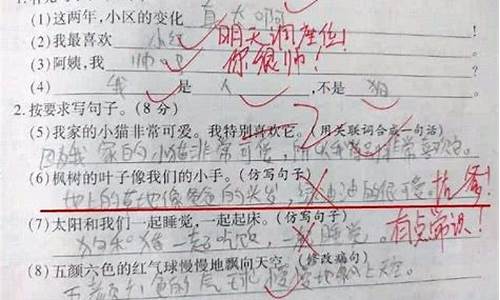 (1)这两年,小区的变化 真大啊
(2)我最喜欢 小红 明天调座位!
(3)阿姨,我 帅吧 你很帅!
(4) 我 是 人 ,不是 狗
2.按要求写句子。(8分)
(5)我家的小猫非常可爱。我特别喜欢它。(用关联词合成一句话)
因为我家的小猫非常可爱,所以我非常喜欢它。
(6)枫树的叶子像我们的小手。(仿写句子)
地上的草地像爸爸的头发,绿油油的很可爱。抗议!
(7)太阳和我们一起睡觉,一起起床。(仿写句子)
狗和猪一起吃饭,一起睡觉。有点常识!
(8)五颜六色的红气球慢慢地飘向天空。(修改病句)
五颜六色的气球慢慢地飘上天空。